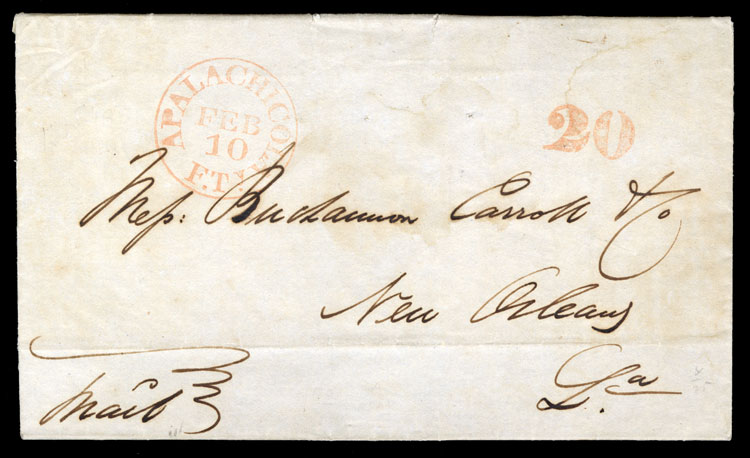 APALACHICOLA
FEB
10
F.T.
20
Mess: Buchannon Carroll & Co
New Orleans
La
Mail